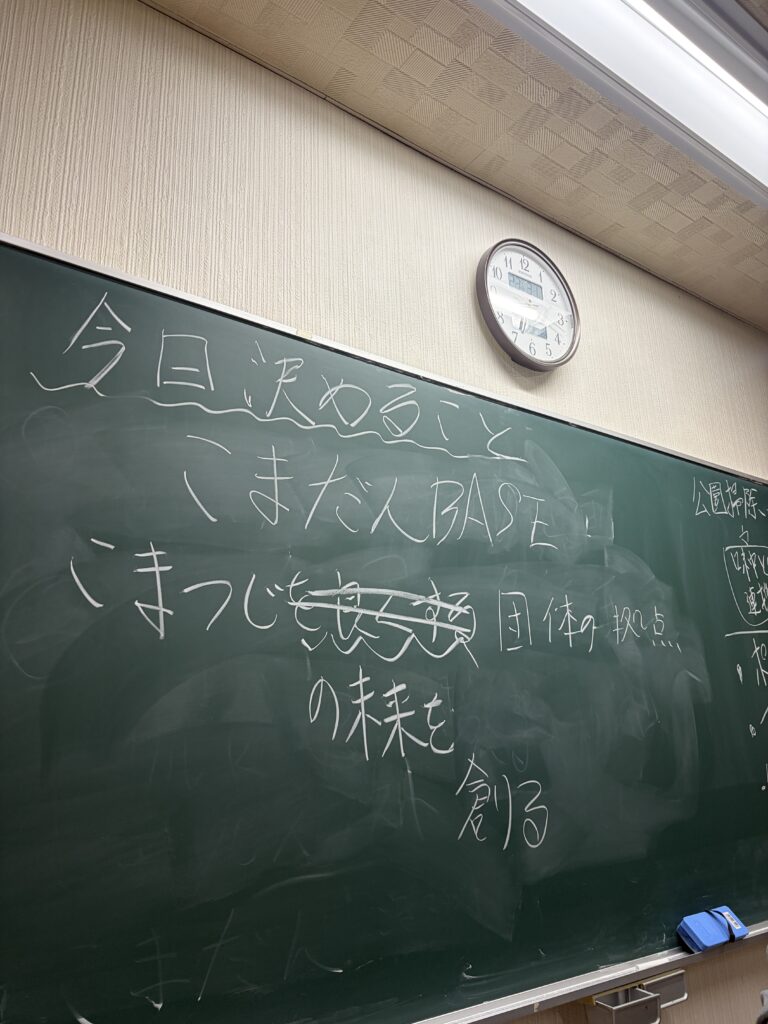 今日決めること
こまだんBASE
こまつじを良くする団体の拠点
の未来を
創る
公園掃除、
まだん
12
1
2
3
4
5
6
7
8
9
10
11